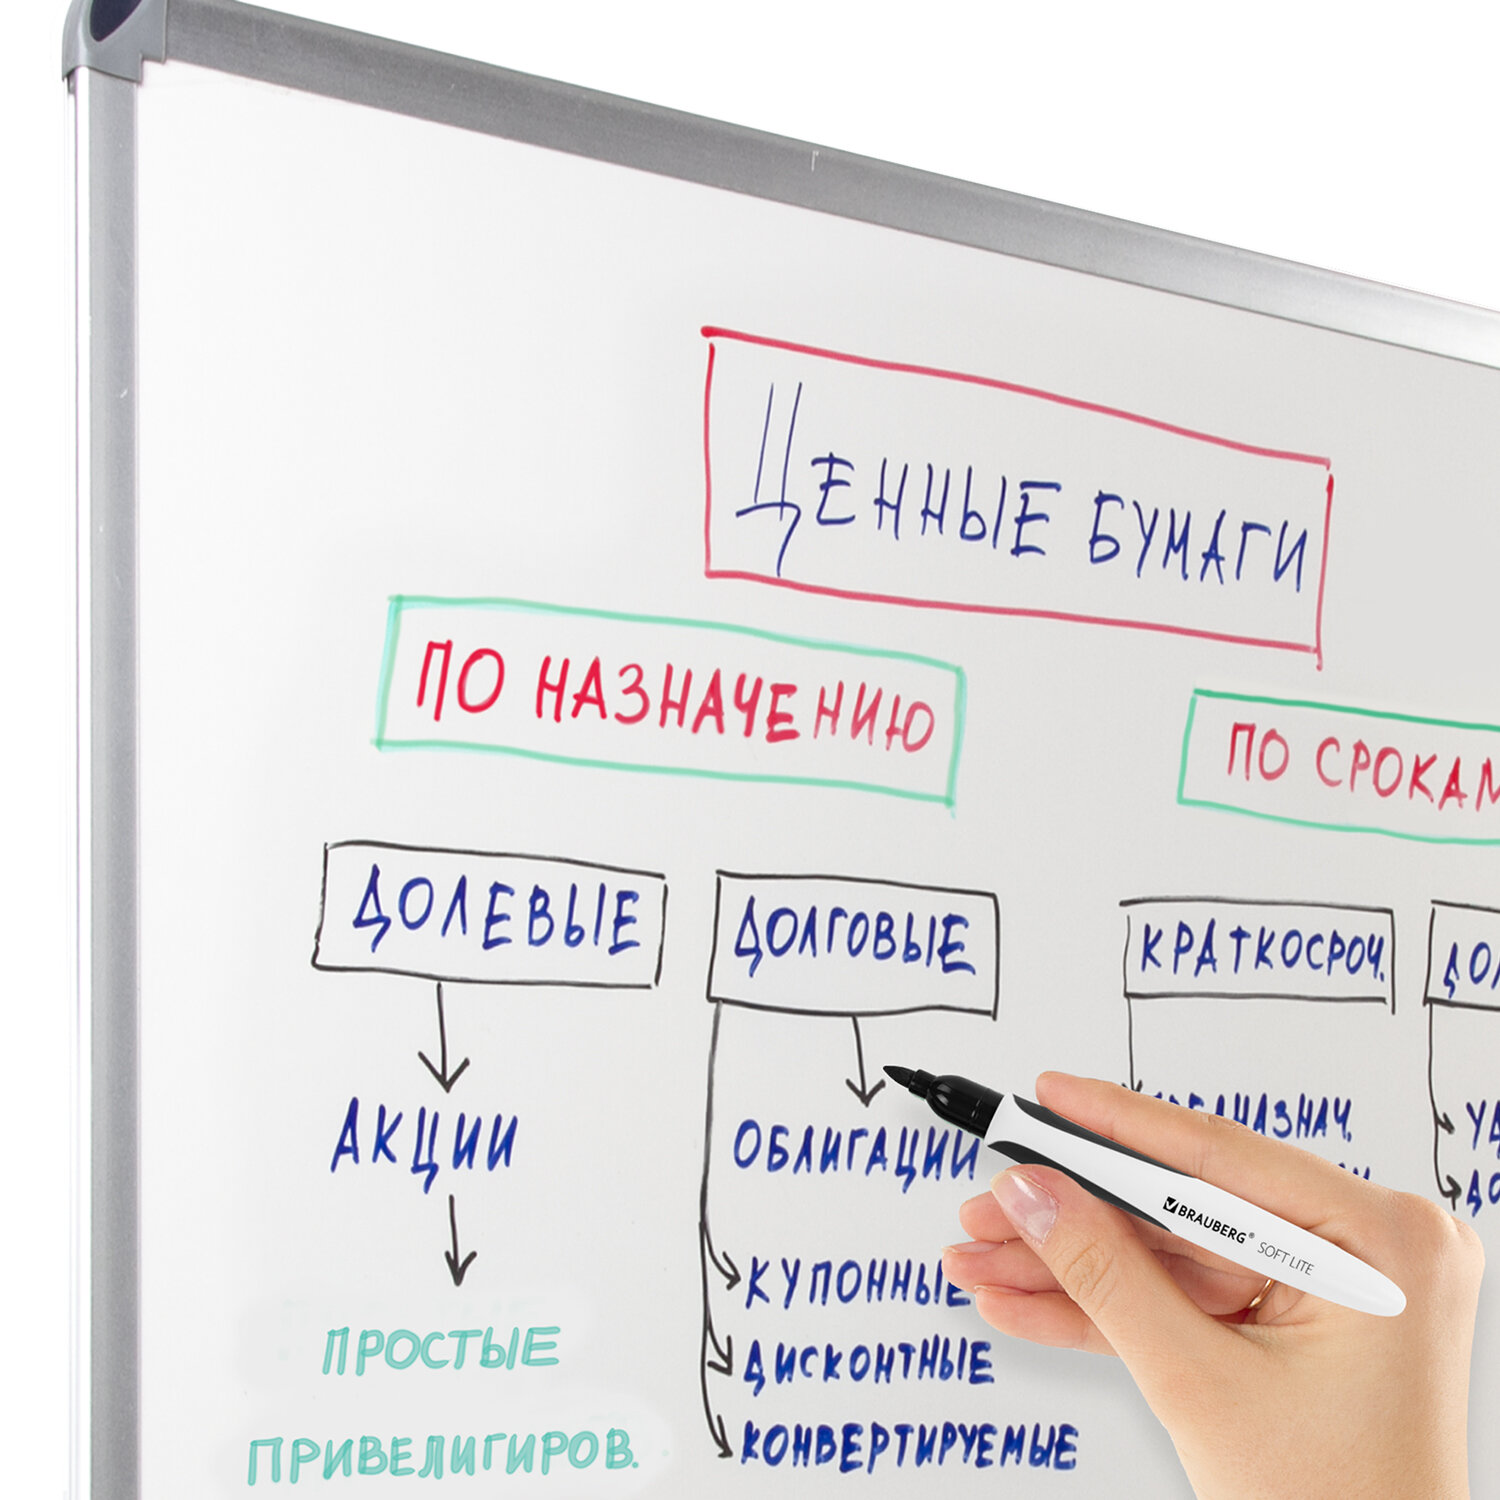 ЦЕННЫЕ БУМАГИ
ПО НАЗНАЧЕНИЮ
ПО СРОКАМ
ДОЛЕВЫЕ
ДОЛГОВЫЕ
КРАТКОСРОЧ.
АКЦИИ
ОБЛИГАЦИИ
ПРОСТЫЕ
ПРИВЕЛИГИРОВ.
КУПОННЫЕ
ДИСКОНТНЫЕ
КОНВЕРТИРУЕМЫЕ
BRAUBERG® SOFT LITE